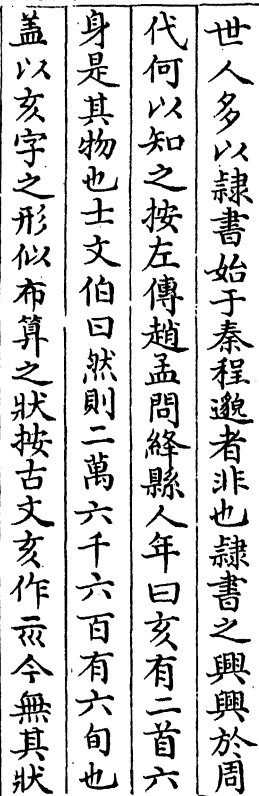 世人多以隷書始于秦程邈者非也隷書之興興於周
代何以知之按左傳趙孟問絳縣人年曰亥有二首六
身是其物也士文伯曰然則二萬六千六百有六旬也
盖以亥字之形似布算之狀按古文亥作𠅁今無其狀